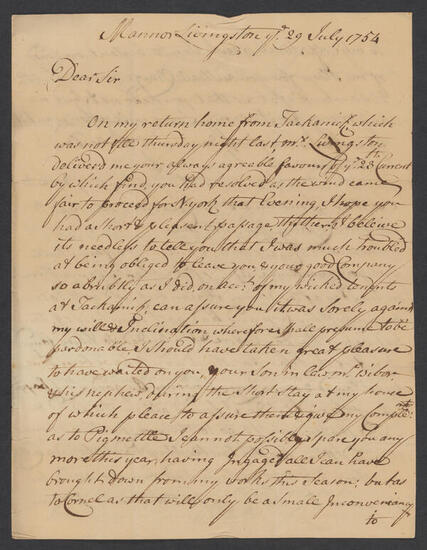 Mannor Livingston yᵉ 29 July 1754
Dear Sir
On my return home from Tackanick, which
was not till thursday night last Mrs. Livingston
delivered me your always agreable favour of yᵉ 23 Current
by which find, you had resolved as the wind came
fair to proceed for NYork that Evening, I hope you
had a short & pleasent passage thither, & beleive
its needless to tell you that I was much troubled
at being obliged to leave you, & your good Company
so abrubtly as I did, on acc: of my wicked tenants
at Tackanick, can assure you it was sorely against
my will & Inclination wherefore shall presume to be
pardonable, I should have taken great pleasure
to have waited on you, your Son in Law mr.
& his nephew, during the short Stay at my house
of which please to assure them & give my Complts:
as to Pigmettle I cannot possibly spare you any
more this year, having Ingaged all I can have
brought down from my works this Season; but as
to Cornel as that will only be a Small Inconveniancy
to